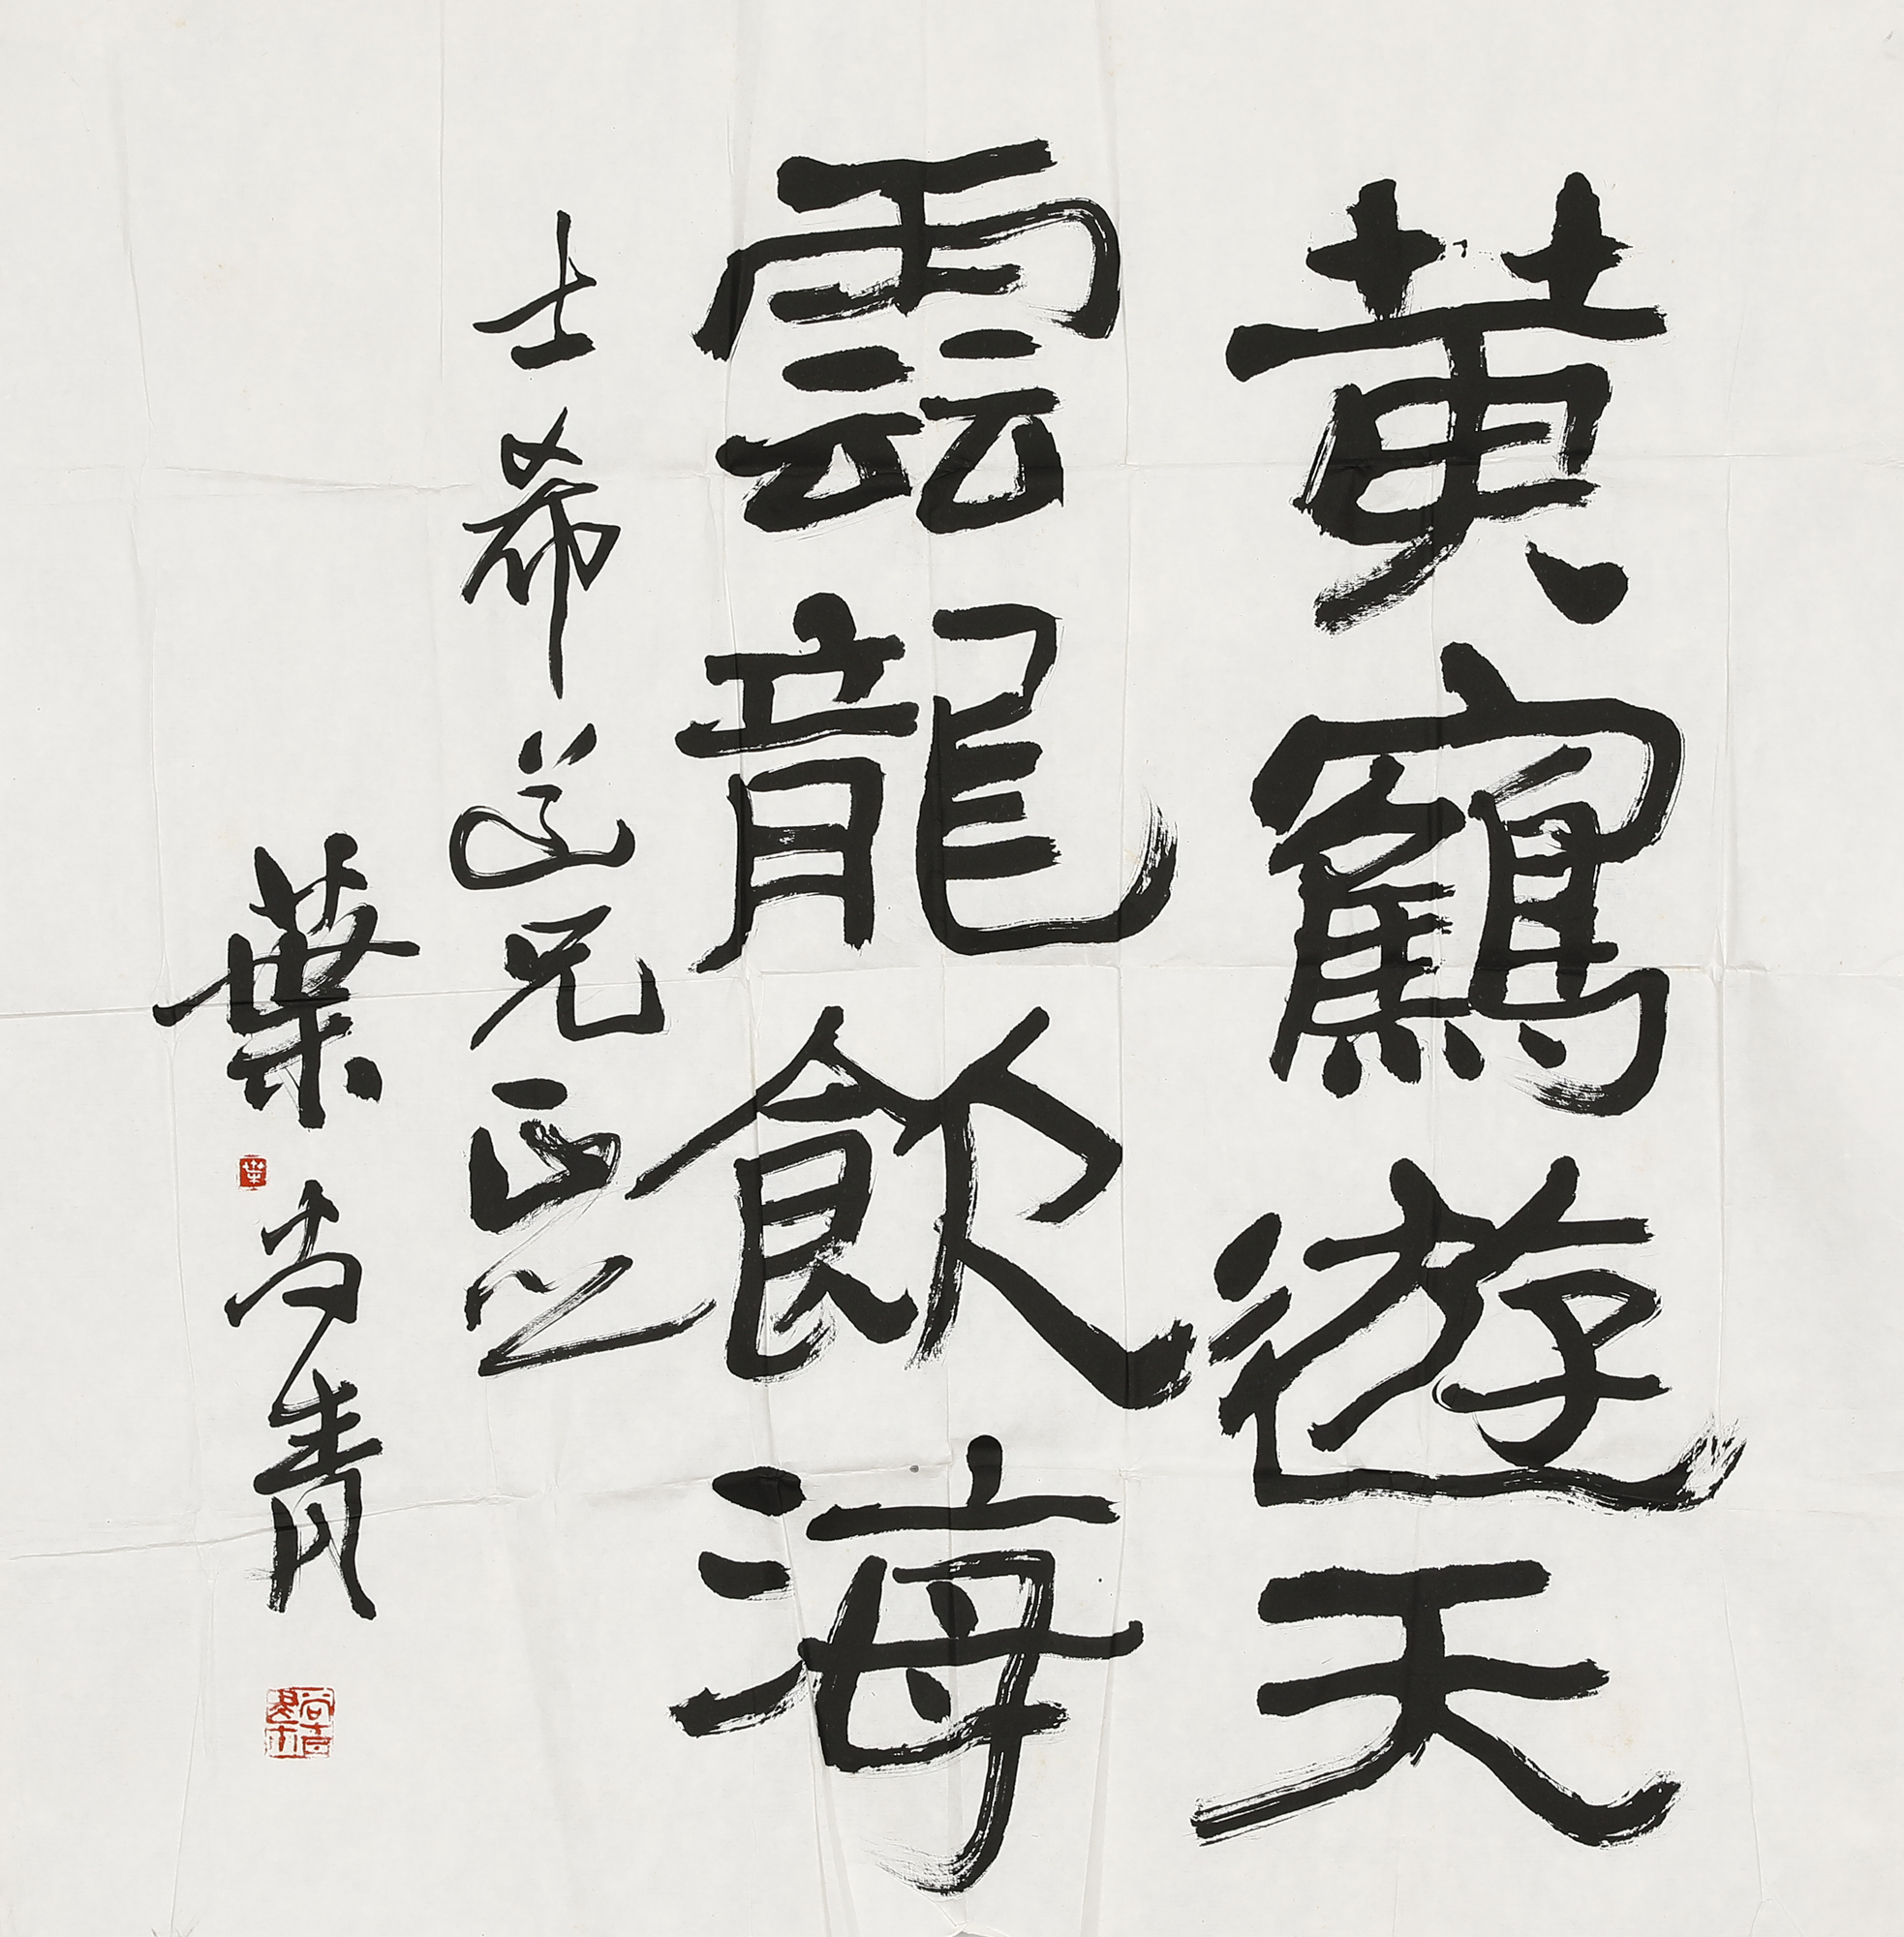 黄鶴遊天
雲龍飲海
士希道兄正之
葉尚青